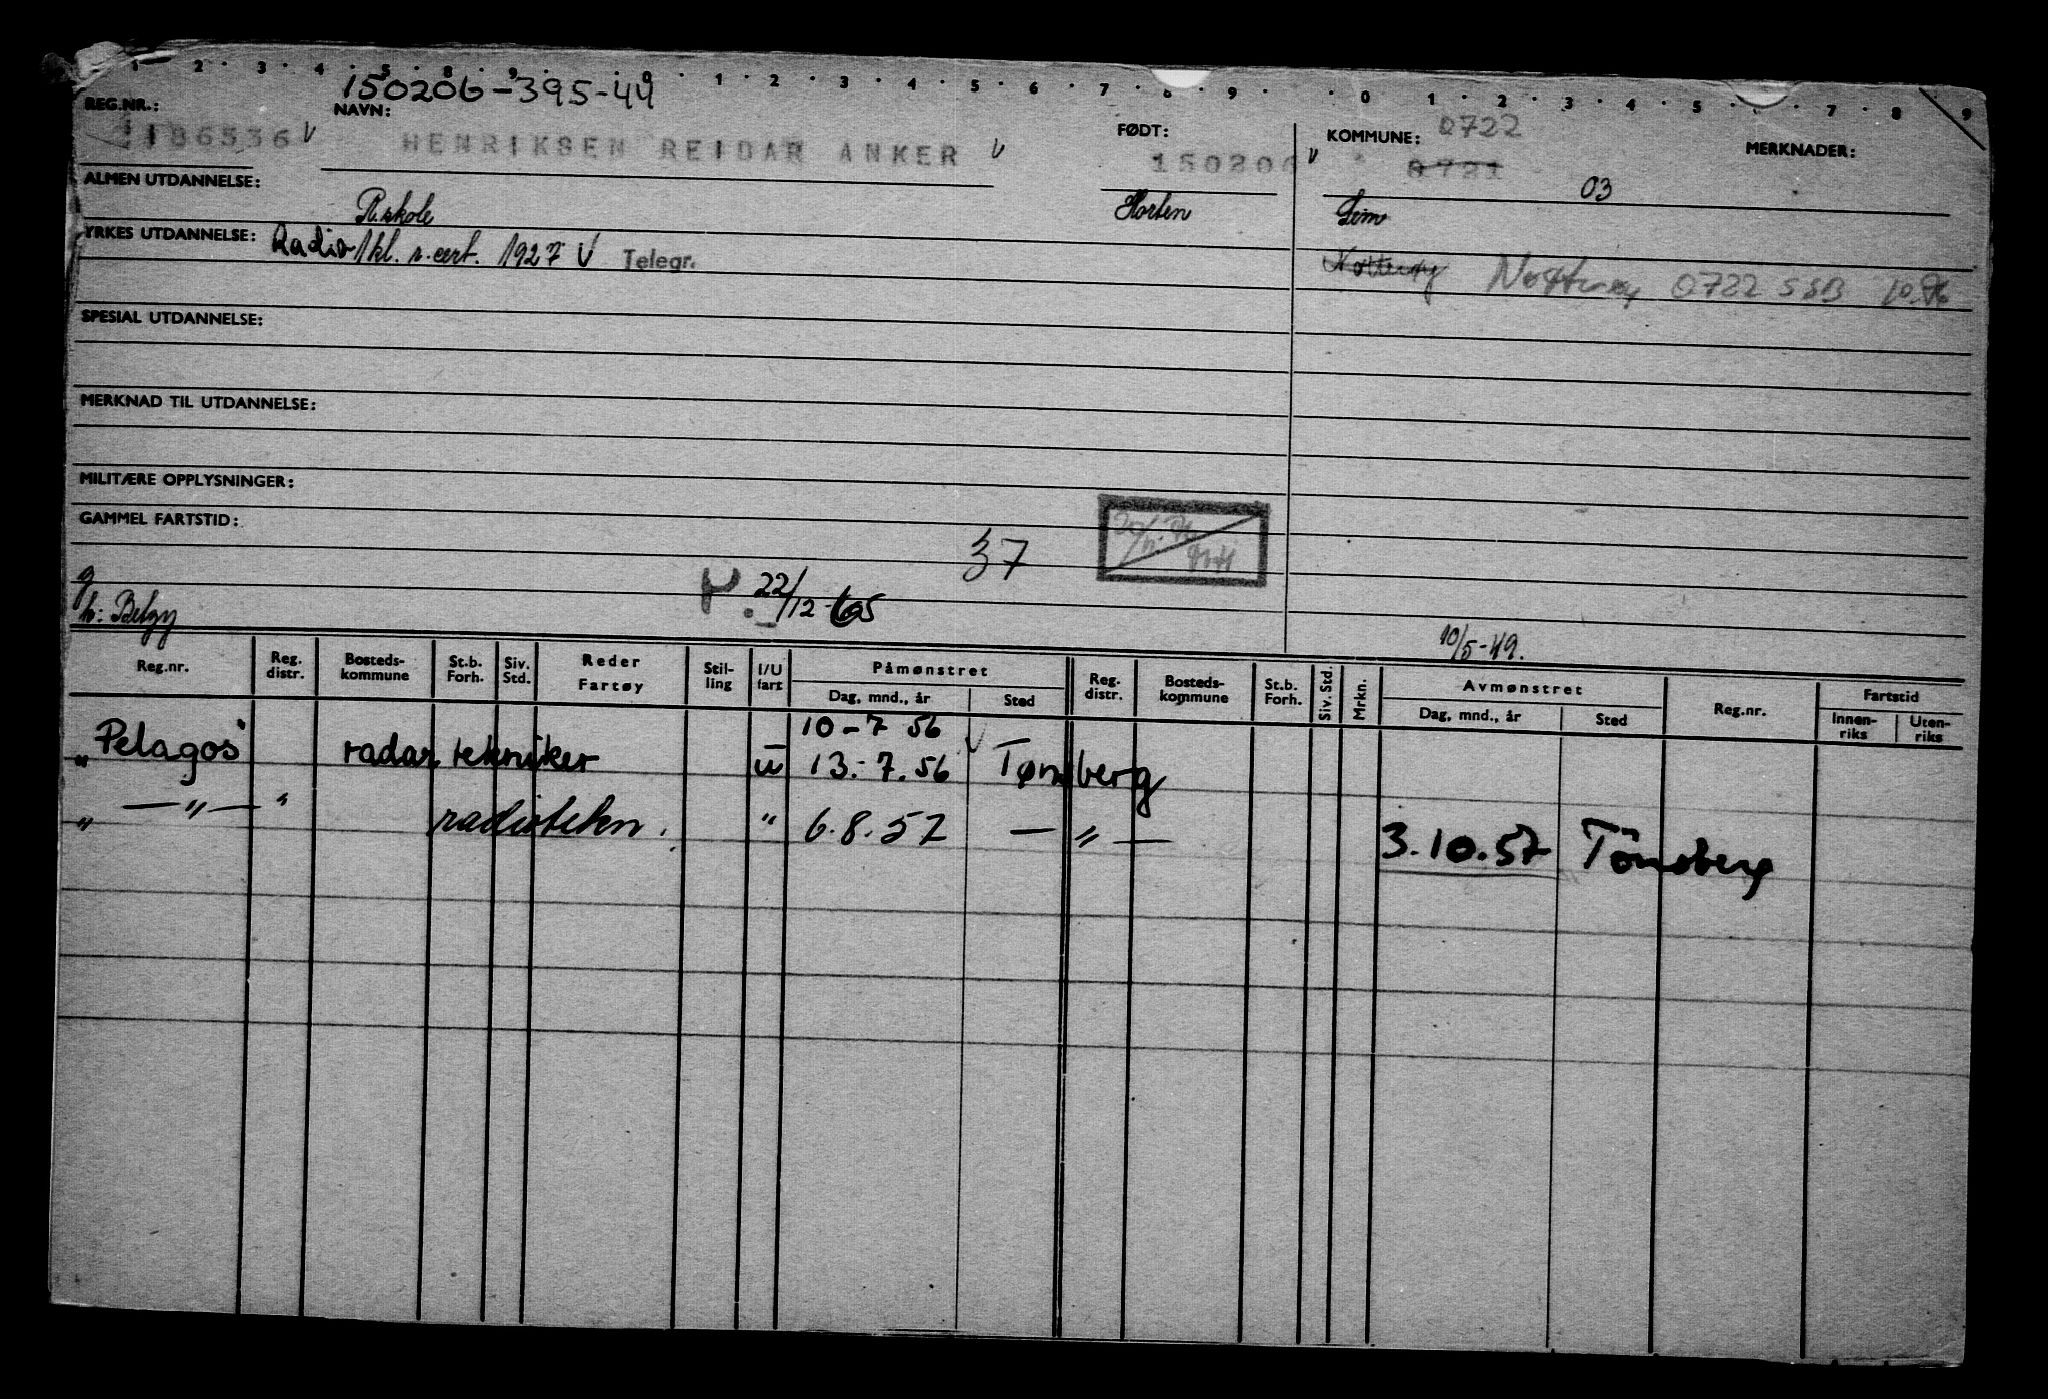 1 · 2 · 3 · 4 · 5 · 8 · 9 · 0 · 1 · 2 · 3 · 4 · 5 · 6 · 7 · 8 · 9 · 0 · 1 · 2 · 3 · 4 · 5 · 7 · 8 · 9
150206-395-44
REG.NR.: NAVN: FØDT: KOMMUNE: 0722 MERKNADER:
186536 V HENRIKSEN REIDAR ANKER V 150206 V 0721
ALMEN UTDANNELSE: R.skole Horten Sem 03
YRKES UTDANNELSE: Radio 1kl. r. cert. 1927 V Telegr. Nøtterøy Nøtterøy 0722 SSB
SPESIAL UTDANNELSE:
MERKNAD TIL UTDANNELSE:
MILITÆRE OPPLYSNINGER:
GAMMEL FARTSTID:
37
22/12-65
10/5-49.
Reg.nr. Reg. distr. Bosteds-kommune St.b. Forh. Siv. Std. Reder Fartøy Stil-ling I/U fart Påmønstret Dag, mnd., år Sted Reg. distr. Bosteds-kommune St.b. Forh. Siv. Std. Mrkn. Avmønstret Dag, mnd., år Sted Reg.nr. Fartstid Innen-riks Uten-riks
10-7 56 V
„Pelagos" radartekniker u 13.-7.56 Tønsberg
„ — „ — " radiotekn. " 6.8.57 — „ — 3.10.57 Tönsberg